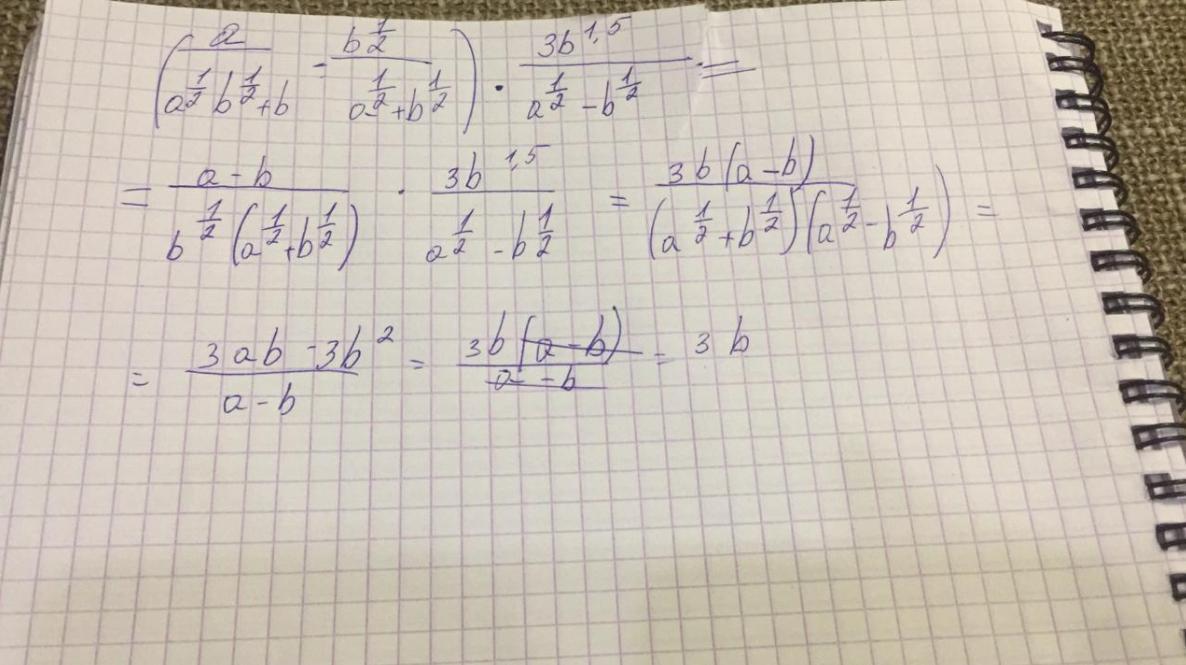 (a/(a^(1/2) b^(1/2) + b) - b^(1/2)/(a^(1/2) + b^(1/2))) · 3b^(1,5)/(a^(1/2) - b^(1/2)) =
= (a - b)/(b^(1/2) (a^(1/2) + b^(1/2))) · 3b^(1,5)/(a^(1/2) - b^(1/2)) = 3b(a - b)/((a^(1/2) + b^(1/2))(a^(1/2) - b^(1/2))) =
= (3ab - 3b^2)/(a - b) = 3b(a - b)/(a - b) = 3b